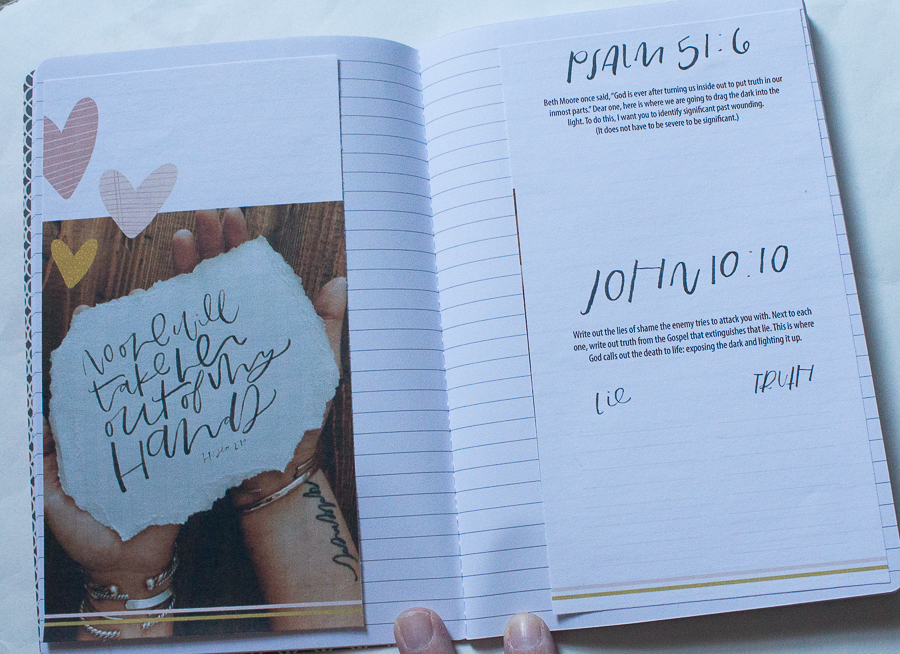 No one will
take her
out of my
Hands
Hosea 2:10
PSALM 51:6
Beth Moore once said, “God is ever after turning us inside out to put truth in our
inmost parts.” Dear one, here is where we are going to drag the dark into the
light. To do this, I want you to identify significant past wounding.
(It does not have to be severe to be significant.)
JOHN 10:10
Write out the lies of shame the enemy tries to attack you with. Next to each
one, write out truth from the Gospel that extinguishes that lie. This is where
God calls out the death to life: exposing the dark and lighting it up.
Lie
TRUTH